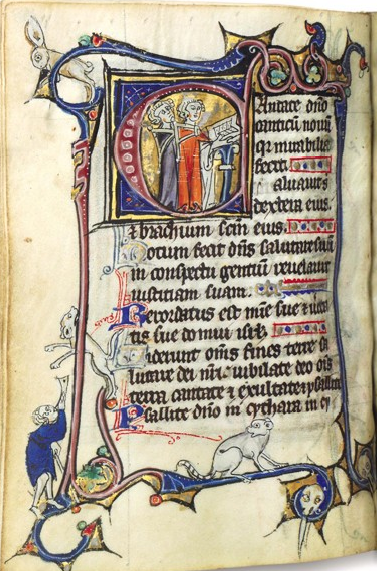 CAntate dño
canticũ nouũ
qr mirabilia
fecit.
Saluauit s
dextera eius.
⁊ brachium scm eius.
Notum fecit dñs salutare suũ
in conspectu gentiũ reuelauit
iustitiam suam.
Recordatus est mie sue ⁊ uita
tis sue domui isrl.
Uiderunt oms fines terre sa
lutare dei nri iubilate deo ois
terra cantate ⁊ exultate ⁊ psallite
Psallite dño in cythara in cy